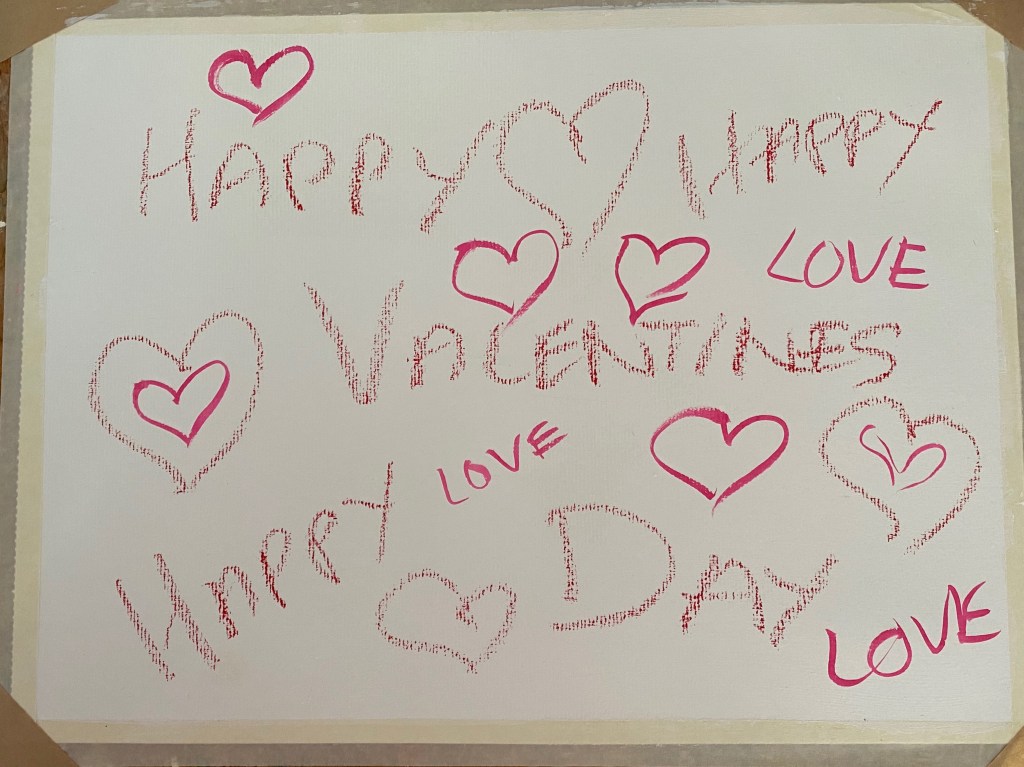 HAPPY HAPPY
LOVE
VALENTINES
LOVE
HAPPY DAY
LOVE